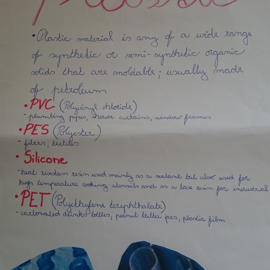 plastic
• Plastic material is any of a wide range
of synthetic or semi-synthetic organic
solids that are moldable; usually made
of petroleum
• PVC (Polyvinyl chloride)
- plumbing pipes, shower curtains, window frames
• PES (Polyester)
- fibers, textiles
• Silicone
- heat resistant resin used mainly as a sealant but also used for
high temperature cooking utensils and as a base resin for industrial
• PET (Polyethylene terephthalate)
- carbonated drinks bottles, peanut butter jars, plastic film